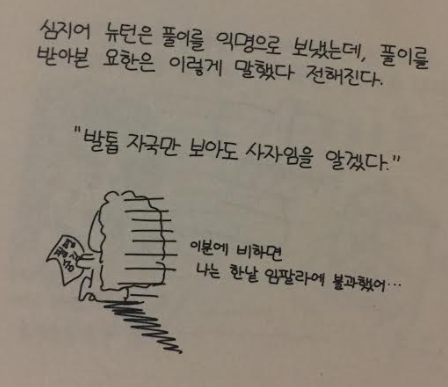 심지어 뉴턴은 풀이를 익명으로 보냈는데, 풀이를
받아본 요한은 이렇게 말했다 전해진다.
"발톱 자국만 보아도 사자임을 알겠다."
이분에 비하면
나는 한낱 임팔라에 불과했어…